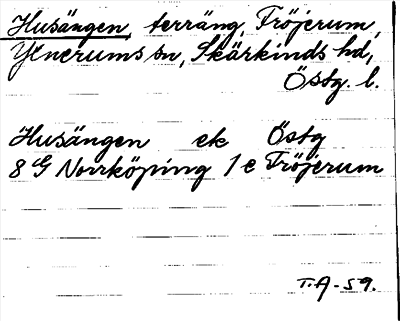 Husängen, terräng, Fröjerum,
Yxnerums sn, Skärkinds hd,
Östg. l.
Husängen ek Östg
8 G Norrköping 1 e Fröjerum
T.A-59.